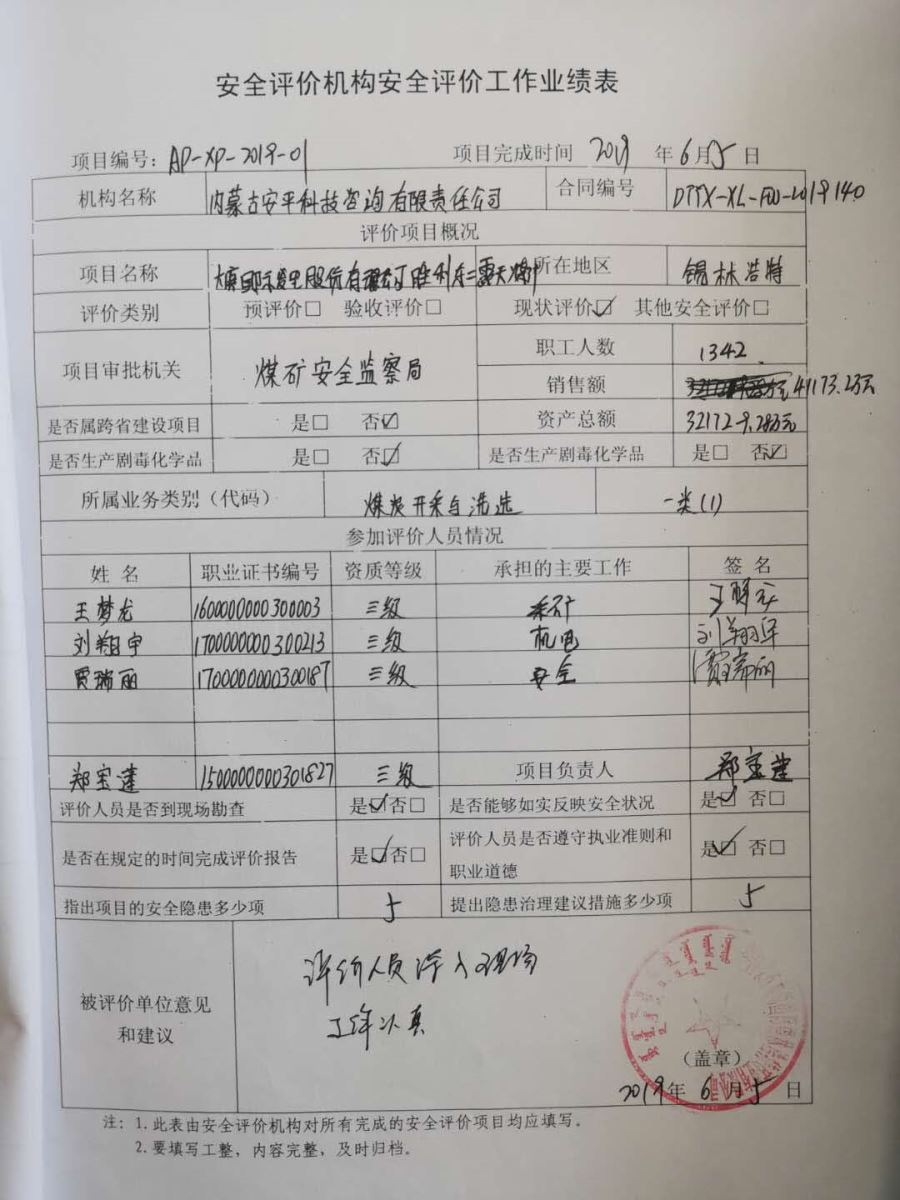 安全评价机构安全评价工作业绩表
项目编号: AP-XP-2019-01 项目完成时间 2019 年 6 月 5 日
机构名称 内蒙古安平科技咨询有限责任公司 合同编号 DTTX-XL-FW-2019140
评价项目概况
项目名称 发电股份有限公司胜利东二露天煤矿 所在地区 锡林浩特
评价类别 预评价□ 验收评价□ 现状评价☑ 其他安全评价□
项目审批机关 煤矿安全监察局 职工人数 1342
销售额 41173.23万元
是否属跨省建设项目 是□ 否☑ 资产总额 321729.28万元
是否生产剧毒化学品 是□ 否☑ 是否生产剧毒化学品 是□ 否☑
所属业务类别(代码) 煤炭开采与洗选 一类(1)
参加评价人员情况
姓 名 职业证书编号 资质等级 承担的主要工作 签 名
王梦龙 1600000000300003 三级 采矿
刘翔宇 1700000000300213 三级 机电 刘翔宇
贾瑞丽 1700000000300187 三级 安全 贾瑞丽
郑宝莲 1500000000301827 三级 项目负责人 郑宝莲
评价人员是否到现场勘查 是☑否□ 是否能够如实反映安全状况 是☑ 否□
是否在规定的时间完成评价报告 是☑否□ 评价人员是否遵守执业准则和
职业道德 是☑ 否□
指出项目的安全隐患多少项 5 提出隐患治理建议措施多少项 5
被评价单位意见
和建议
评价人员深入现场
工作认真
(盖章)
2019年 6 月 5 日
注: 1. 此表由安全评价机构对所有完成的安全评价项目均应填写。
2. 要填写工整, 内容完整, 及时归档。